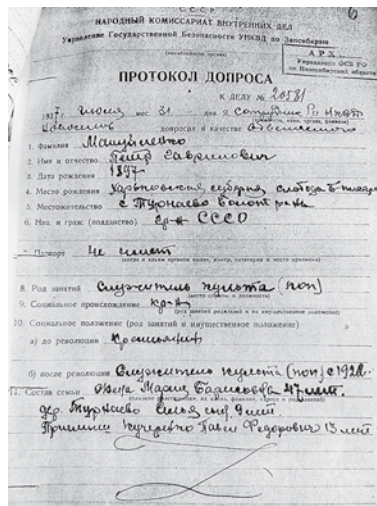 С С С Р
6
НАРОДНЫЙ КОМИССАРИАТ ВНУТРЕННИХ ДЕЛ
Управление Государственной Безопасности УНКВД по Запсибкраю
АРХ
Управления ФСБ РФ
по Новосибирской области
ПРОТОКОЛ ДОПРОСА
К ДЕЛУ № 20581
1937 г. июля мес. 31 дня Я, сотрудник
допросил в качестве обвиняемого
1. Фамилия Мануйленко
2. Имя и отчество Петр Гаврилович
3. Дата рождения 1897
4. Место рождения Харьковская губерния слобода
5. Местожительство с Турнаево Болот р-на
6. Нац. и граж. (подданство) СССР
7. Паспорт не имеет
(когда и каким органом выдан, номер, категория и место прописки)
8. Род занятий Служитель культа (поп)
(место службы и должность)
9. Социальное происхождение кр-н
(род занятий родителей и их имущественное положение)
10. Социальное положение (род занятий и имущественное положение)
а) до революции Крестьянин
б) после революции Служитель культа (поп) с
11. Состав семьи Жена Мария 47 лет.
дер Турнаево 9 лет.
Приемыш Кучеренко Павел Федорович 13 лет